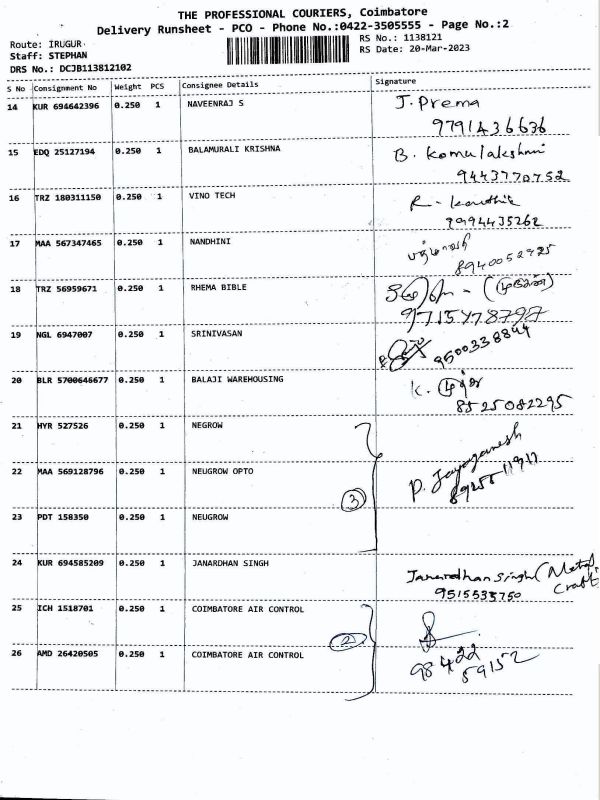 THE PROFESSIONAL COURIERS, Coimbatore
Delivery Runsheet - PCO - Phone No.:0422-3505555 - Page No.:2
Route: IRUGUR
Staff: STEPHAN
DRS No.: DCJB113812102
RS No.: 1138121
RS Date: 20-Mar-2023
S No Consignment No Weight PCS Consignee Details Signature
14 KUR 694642396 0.250 1 NAVEENRAJ S J. Prema
9791436636
15 EDQ 25127194 0.250 1 BALAMURALI KRISHNA B. Komulakshmi
9443770752
16 TRZ 180311150 0.250 1 VINO TECH R. Karthik
9994435262
17 MAA 567347465 0.250 1 NANDHINI பத்மாவதி
8940052925
18 TRZ 56959671 0.250 1 RHEMA BIBLE (முருகேசன்)
9715478797
19 NGL 6947007 0.250 1 SRINIVASAN 9500338844
20 BLR 5700646677 0.250 1 BALAJI WAREHOUSING K.
8525082295
21 HYR 527526 0.250 1 NEGROW
22 MAA 569128796 0.250 1 NEUGROW OPTO P. Jayaganesh
3
23 PDT 158350 0.250 1 NEUGROW
24 KUR 694585209 0.250 1 JANARDHAN SINGH Janardhan Singh (Metal Craft)
9515533750
25 ICH 1518701 0.250 1 COIMBATORE AIR CONTROL
2
26 AMD 26420505 0.250 1 COIMBATORE AIR CONTROL 98422
59152